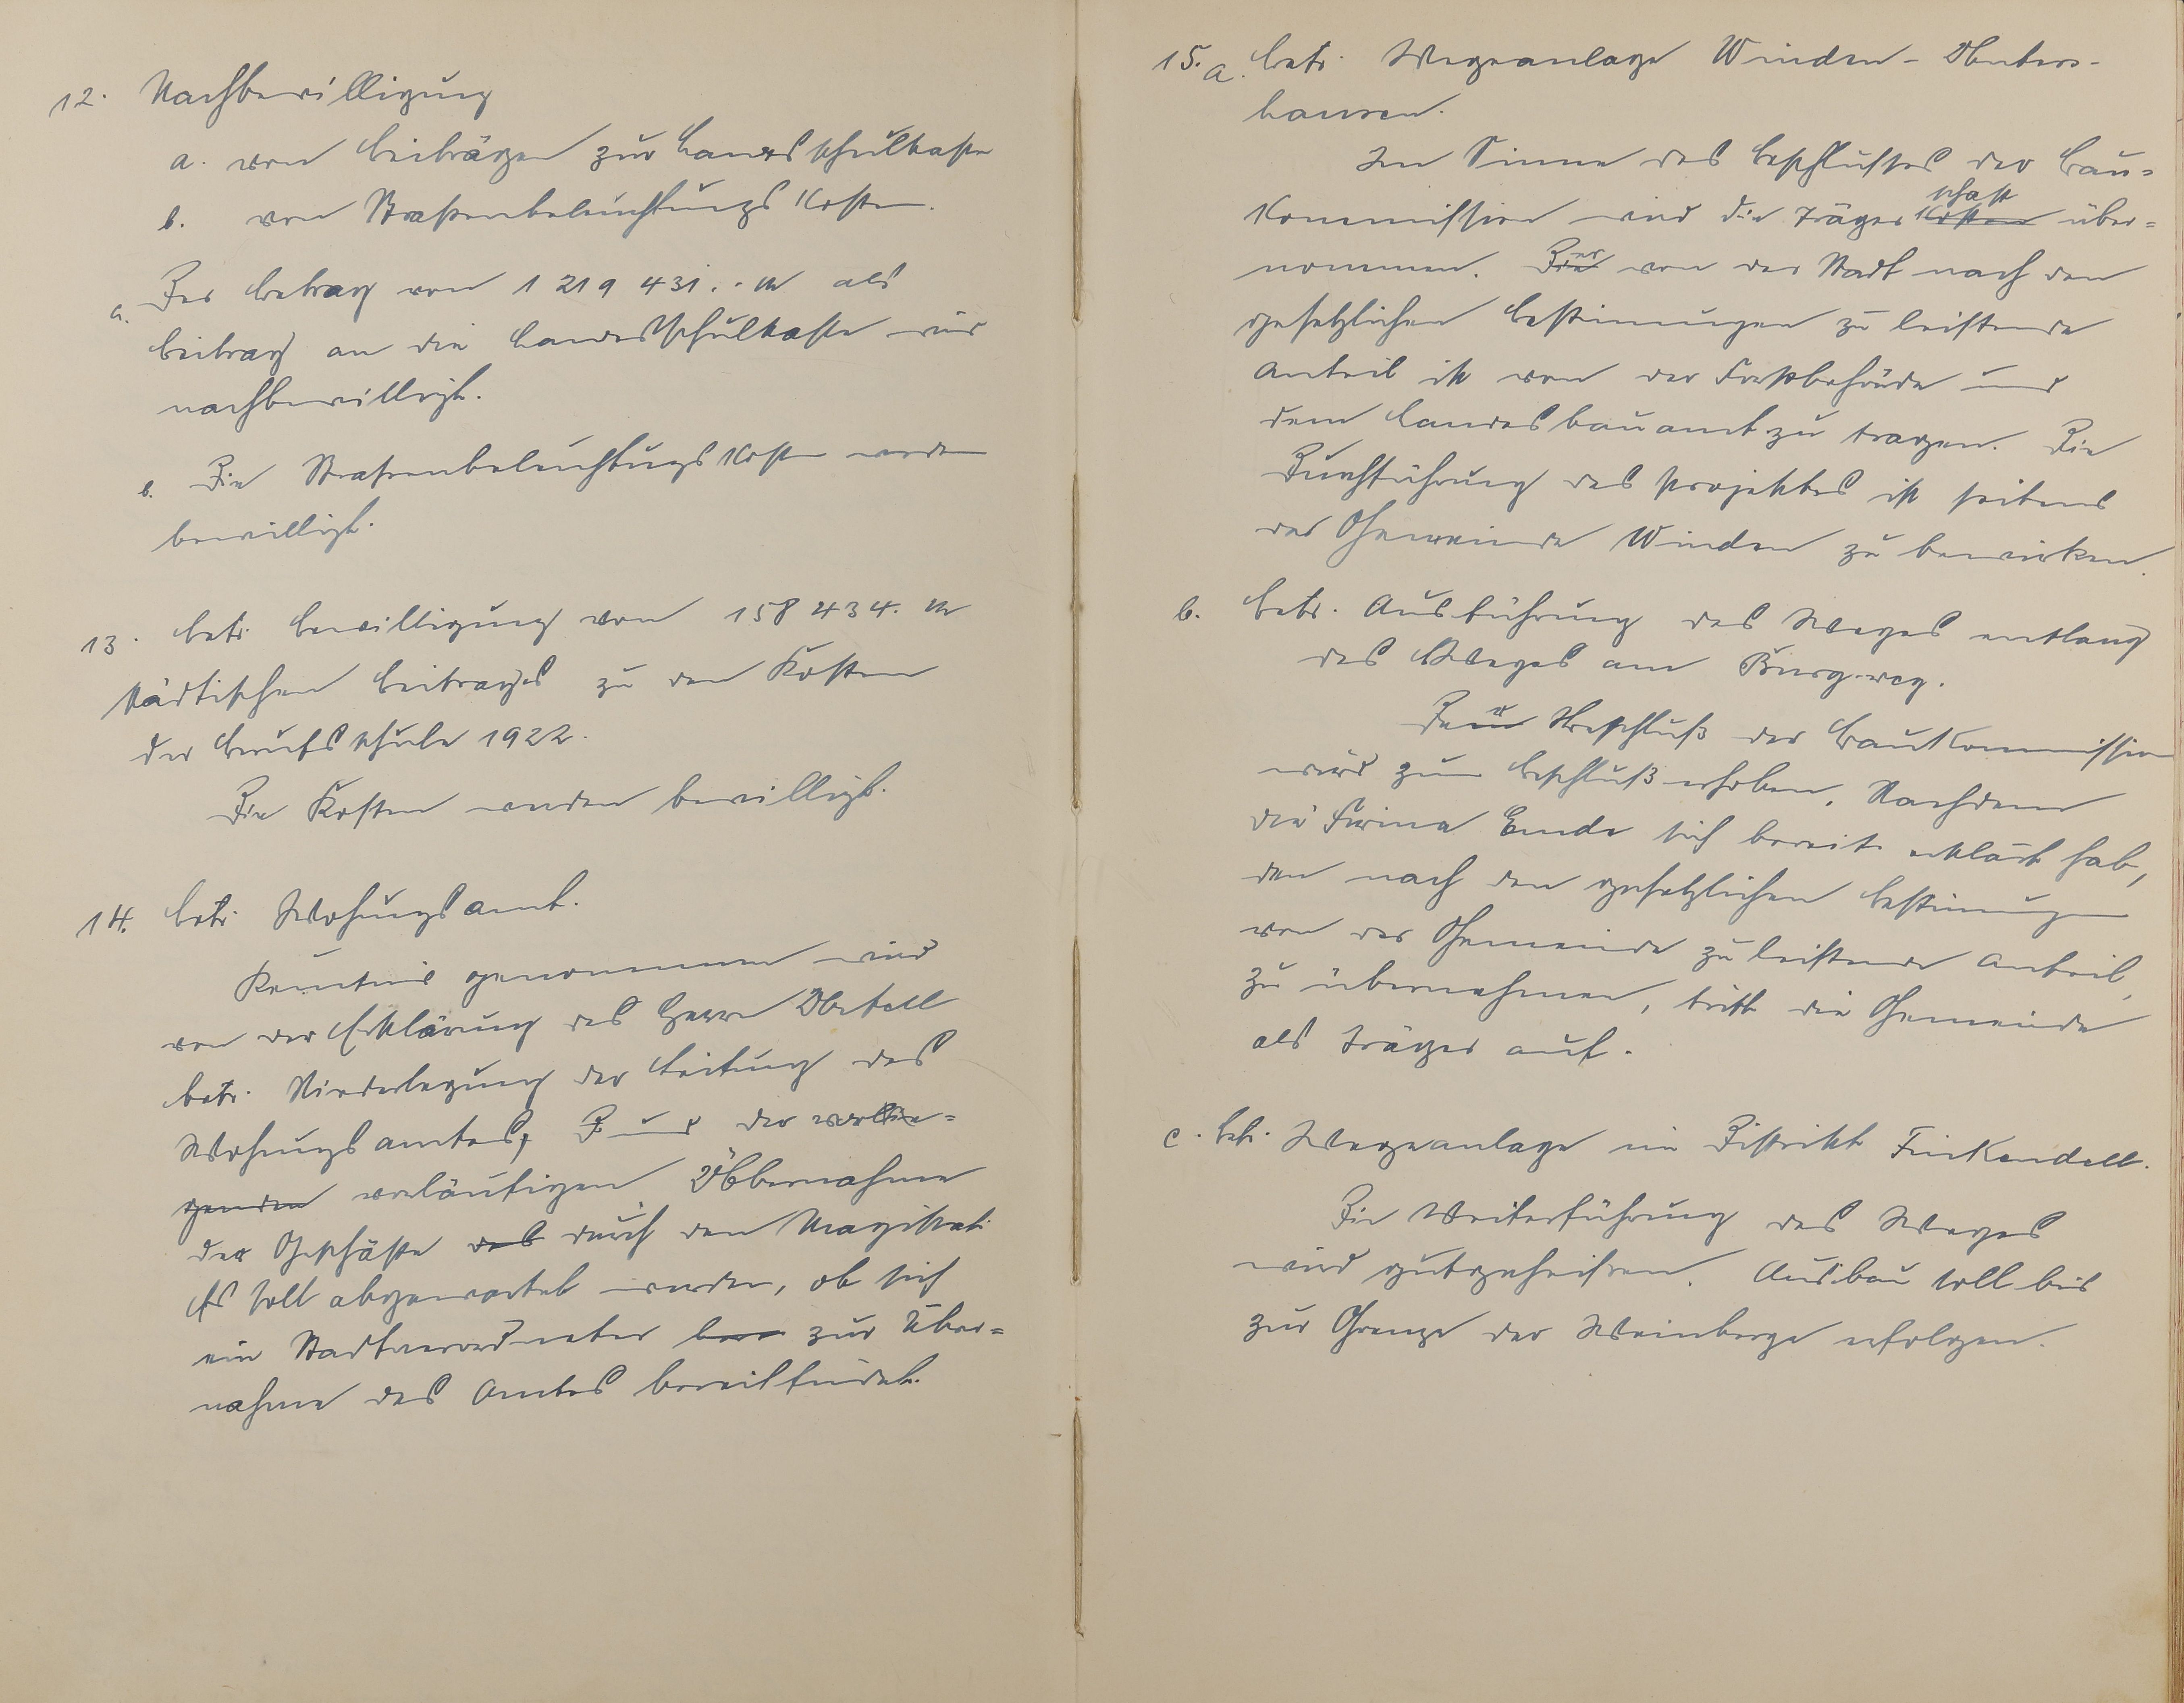 12. Nachbewilligung
a. von Beiträgen zur Landesschulkasse
b. von Strassenbeleuchtungskosten.
a. Der Betrag von 1 219 431.- M als
Beitrag an die Landesschulkasse wird
nachbewilligt.
b. Die Strassenbeleuchtungskosten werden
bewilligt.
13. betr. Bewilligung von 158 434. M
städtischen Beitrages zu den Kosten
der Berufsschule 1922.
Die Kosten werden bewilligt.
14. betr. Wohungsamt.
Kenntnis genommen wird
von der Erklärung des Herrn
betr. Niederlegung der Leitung des
Wohungsamtes, und der vorlie=
genden vorläufigen Übernahme
der Geschäfte des durch den Magistrat.
Es soll abgewartet werden, ob sich
ein Stadtverordneter zur Über=
nahme des Amtes bereitfindet.
15. a. betr. Wegeanlage Winden-
hausen.
Im Sinne des Beschlusses der Bau=
Kommission wird die Träger Kosten schaft über=
nommen. Der von der Stadt nach den
gesetzlichen Bestimmungen zu leistende
Anteil ist von der Forstbehörde und
dem Landesbauamt zu tragen. Die
Durchführung des Projektes ist seitens
der Gemeinde Winden zu bewirken.
b. betr. Ausführung des Weges entlang
des Weges am Burgweg.
Beschluß der Baukommission
wird zum Beschluß erhoben. Nachdem
die Firma Ende sich bereit erklärt hab,
den nach den gesetzlichen Bestimmungen
von der Gemeinde zu leistende Anteil,
zu übernehmen, tritt die Gemeinde
als Träger auf.
c. betr. Wegeanlage im Distrikt Finkendell.
Die Weiterführung des Weges
wird gutgeheissen. Ausbau soll bis
zur Grenze der Weinberge erfolgen.